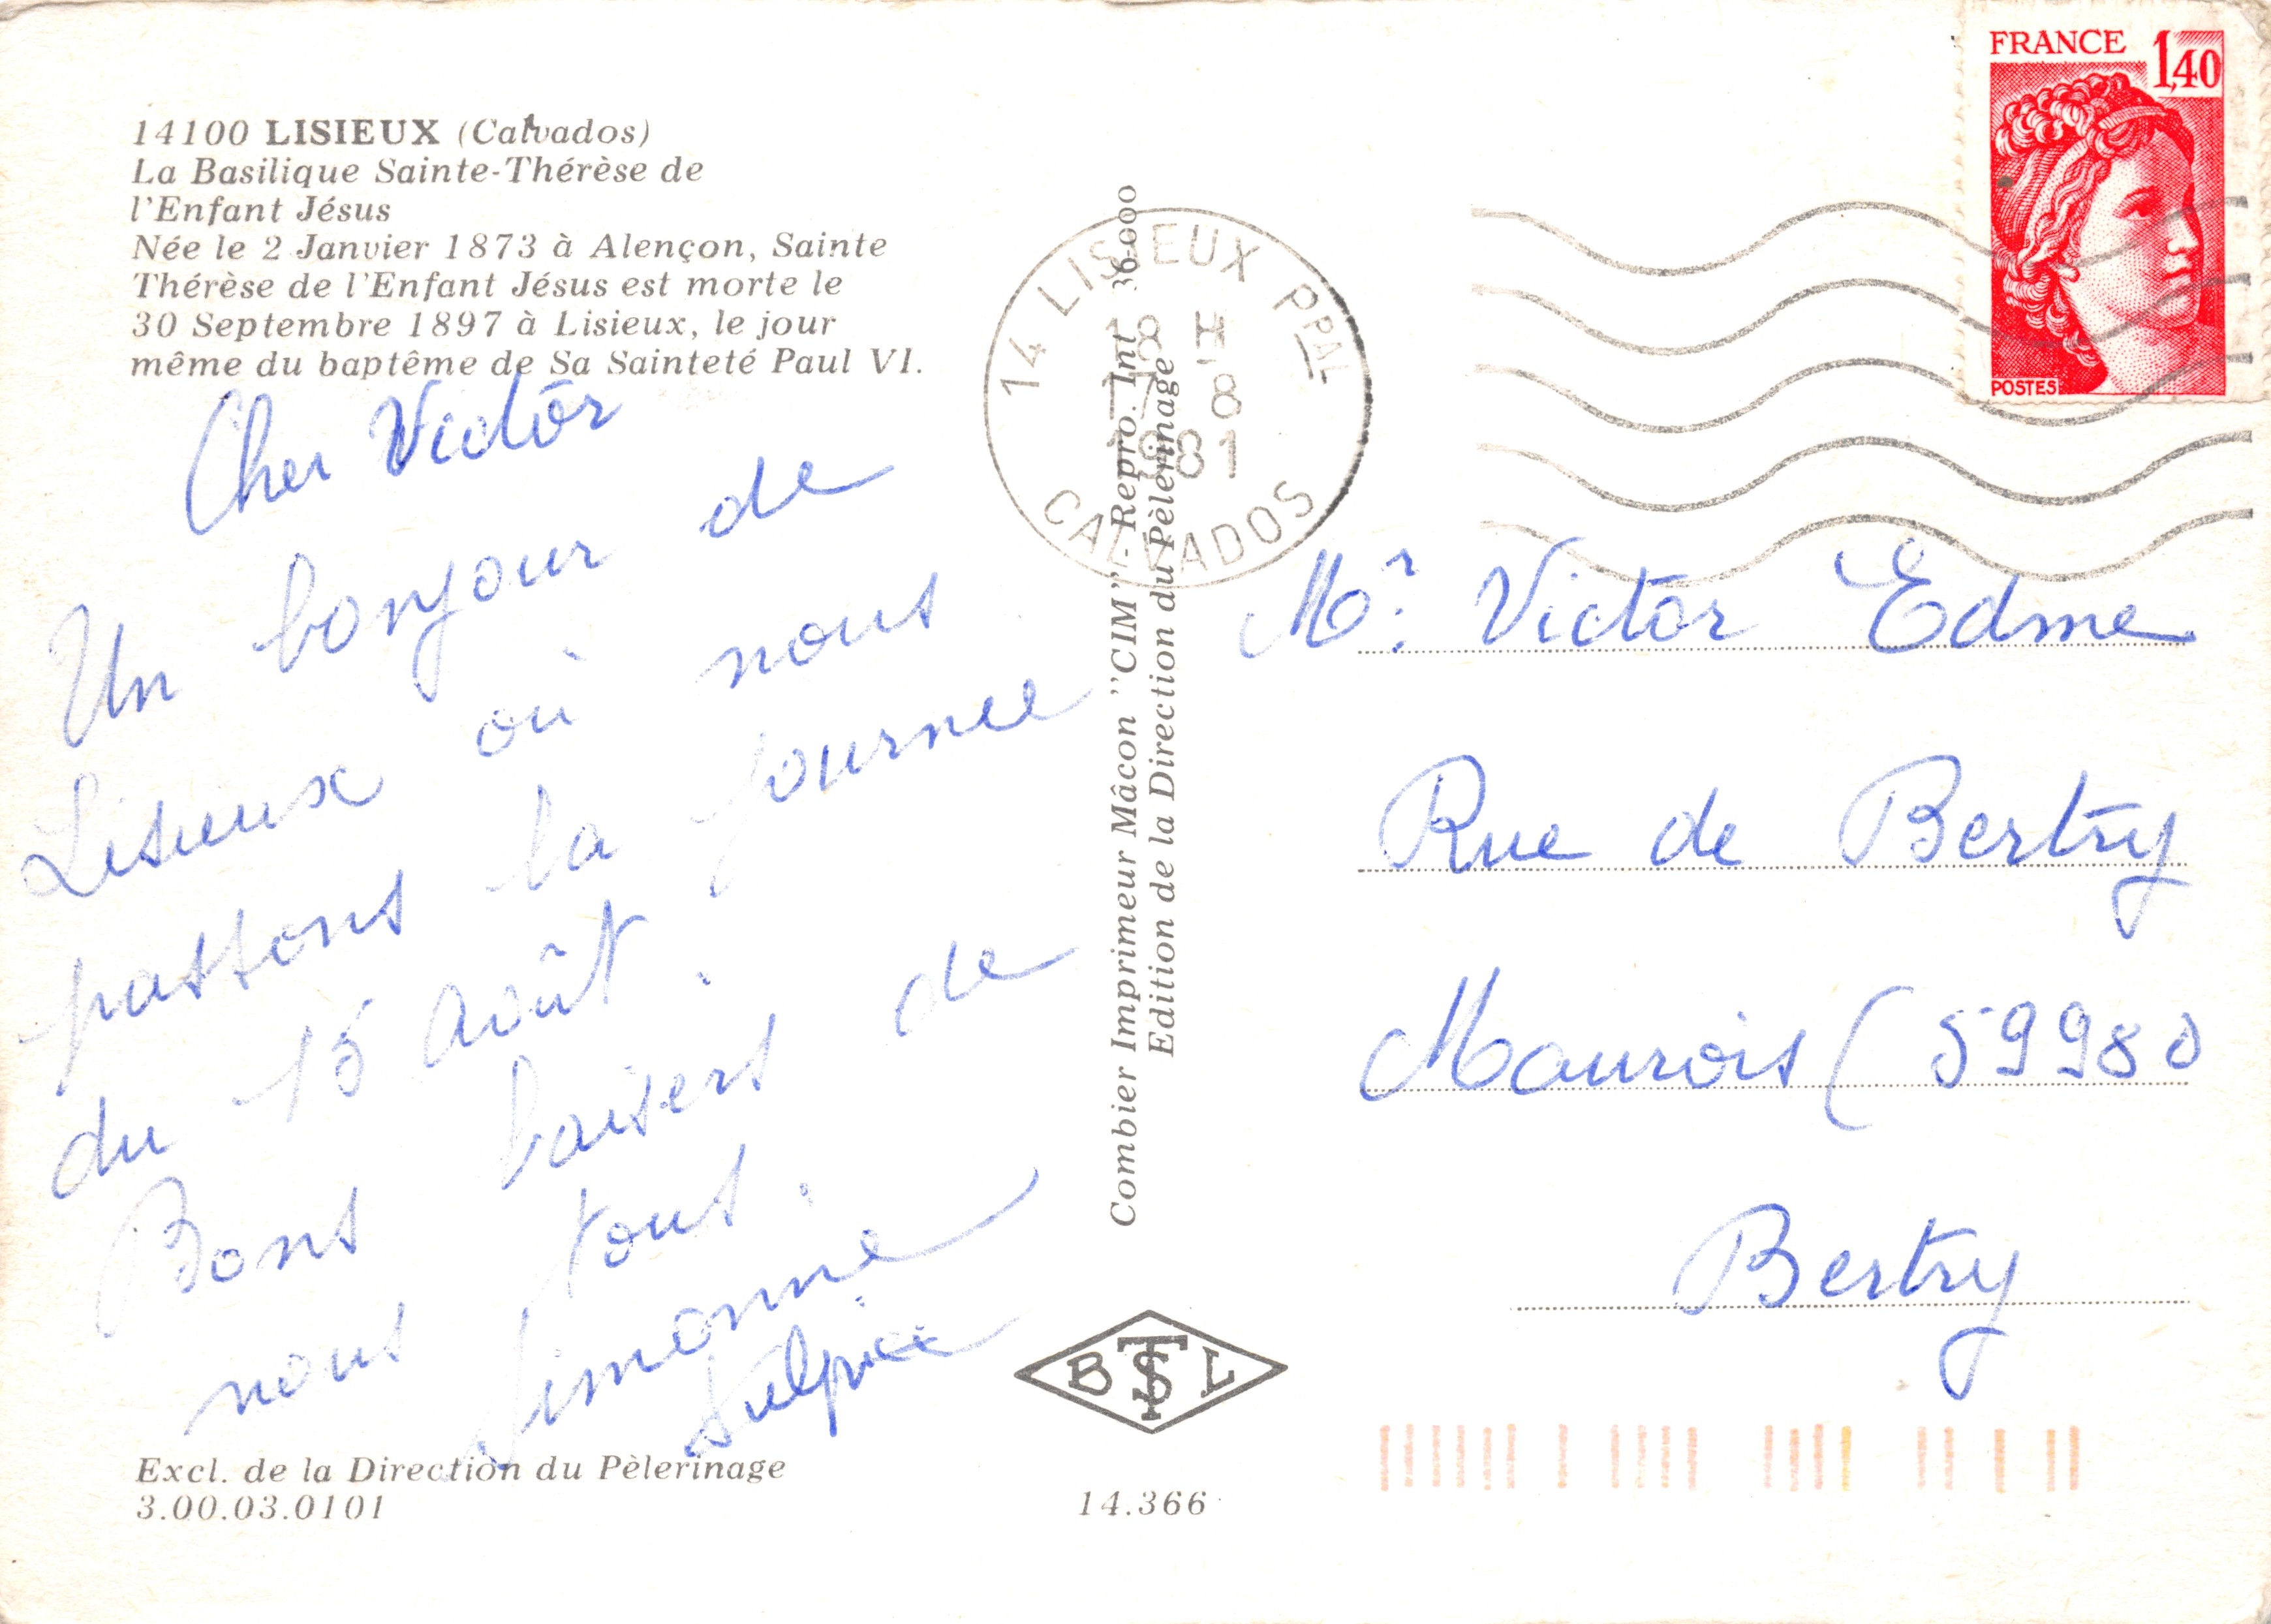 14100 LISIEUX (Calvados)
La Basilique Sainte-Thérèse de
l'Enfant Jésus
Née le 2 Janvier 1873 à Alençon, Sainte
Thérèse de l'Enfant Jésus est morte le
30 Septembre 1897 à Lisieux, le jour
même du baptême de Sa Sainteté Paul VI.
Cher Victor
Un bonjour de
Lisieux où nous
passons la journee
du 15 Août.
Bons baisers de
nous tous.
Simonne
Sulpice
Excl. de la Direction du Pèlerinage
3.00.03.0101
Combier Imprimeur Mâcon "CIM" - Repro. Int 36.000
Edition de la Direction du Pèlerinage
BTSL
14.366
14 LISIEUX PPAL
18 H
17-8
1981
CALVADOS
FRANCE 1,40
POSTES
Mr Victor Edme
Rue de Bertry
Maurois (59980
Bertry